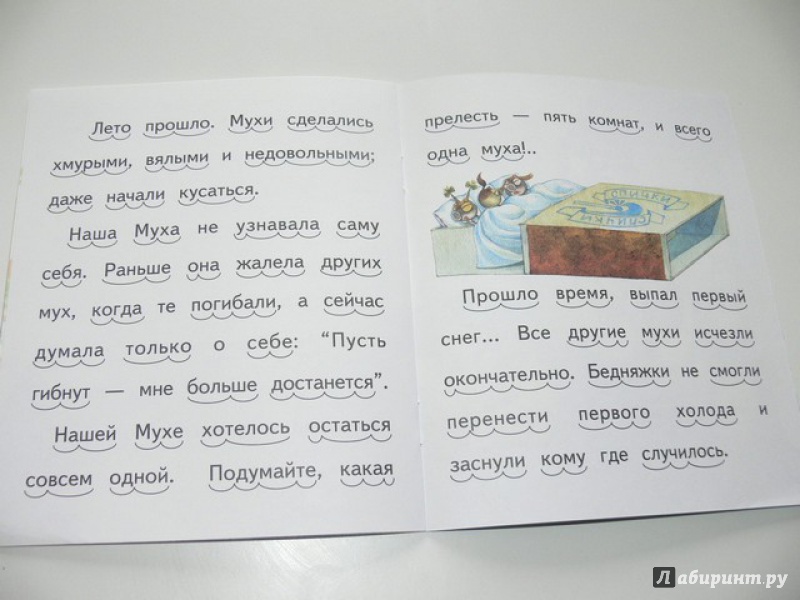 Лето прошло. Мухи сделались
хмурыми, вялыми и недовольными;
даже начали кусаться.
Наша Муха не узнавала саму
себя. Раньше она жалела других
мух, когда те погибали, а сейчас
думала только о себе: “Пусть
гибнут — мне больше достанется”.
Нашей Мухе хотелось остаться
совсем одной. Подумайте, какая
прелесть — пять комнат, и всего
одна муха!..
СПИЧКИ
СПИЧКИ
Прошло время, выпал первый
снег... Все другие мухи исчезли
окончательно. Бедняжки не смогли
перенести первого холода и
заснули кому где случилось.
Лабиринт.ру